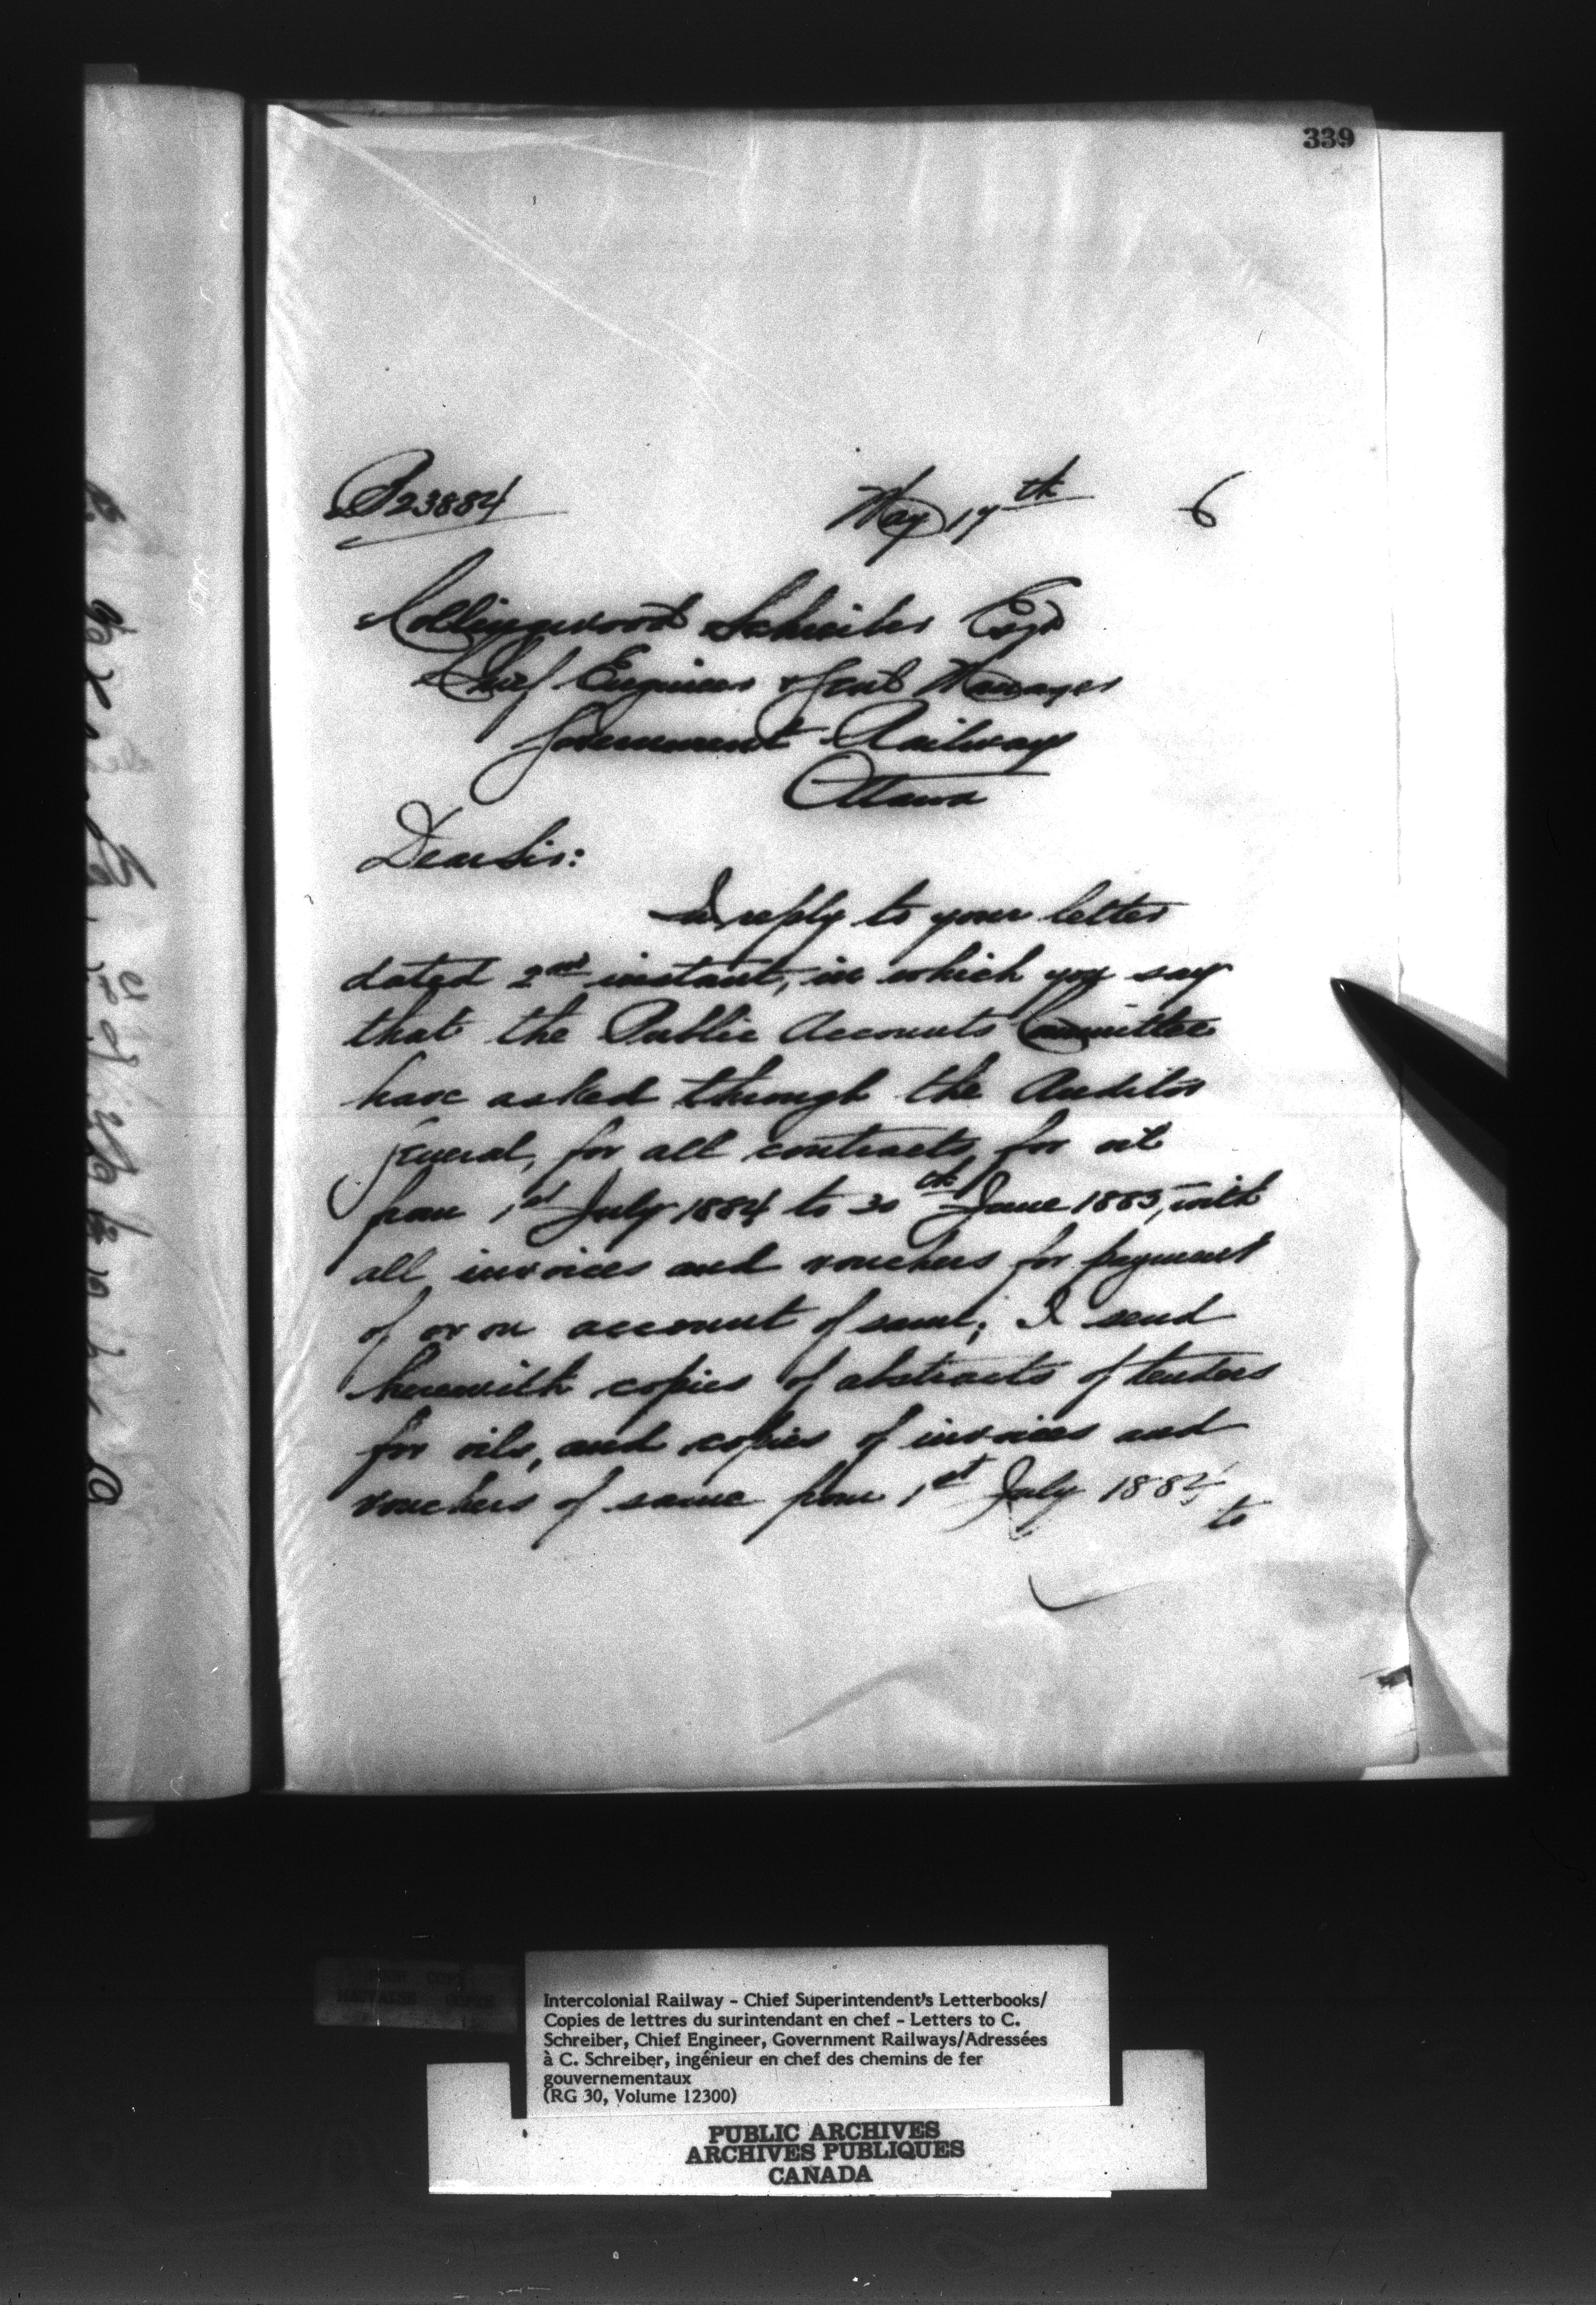 339
P23884 May 17th 6
Collingwood Schreiber Esqr
Chief Engineer & Genl Manager
Government Railways
Ottawa
Dear Sir:
In reply to your letter
dated 2nd instant, in which you say
that the Public Accounts Committee
have asked through the Auditor
General, for all contracts for oil
from 1st July 1884 to 30th June 1885, with
all invoices and vouchers for payment
of or on account of same; I send
herewith copies of abstracts of tenders
for oils, and copies of invoices and
vouchers of same from 1st July 1884
to
Intercolonial Railway - Chief Superintendent's Letterbooks/
Copies de lettres du surintendant en chef - Letters to C.
Schreiber, Chief Engineer, Government Railways/Adressées
à C. Schreiber, ingénieur en chef des chemins de fer
gouvernementaux
(RG 30, Volume 12300)
PUBLIC ARCHIVES
ARCHIVES PUBLIQUES
CANADA